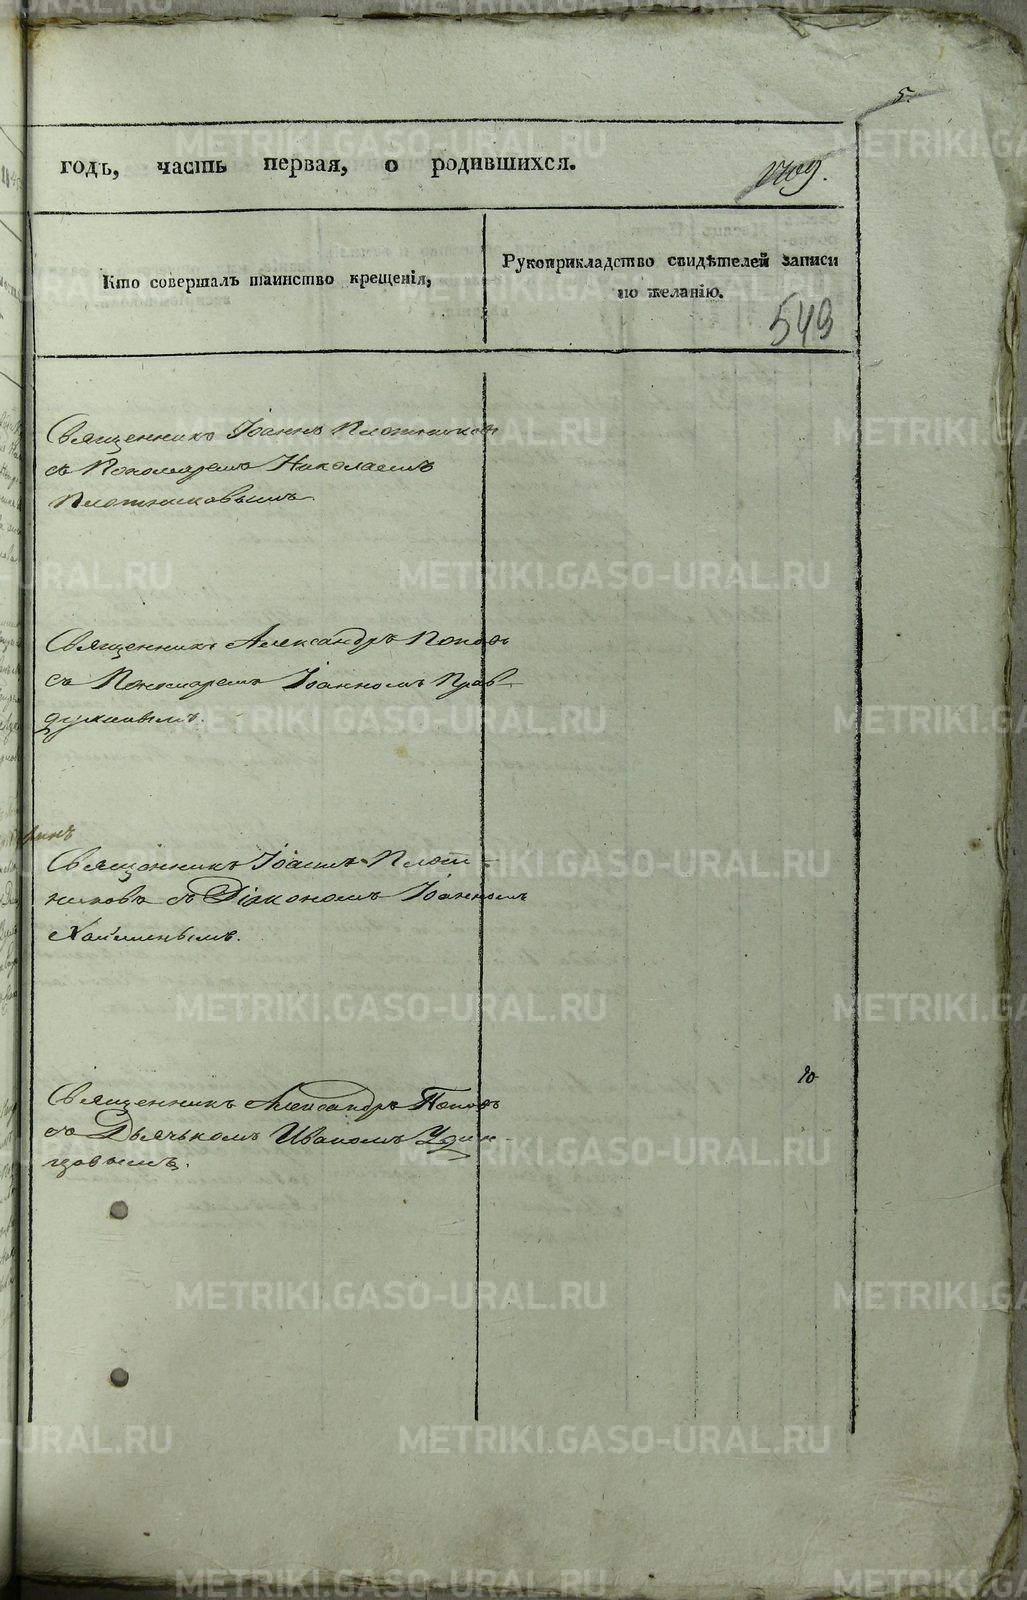 5.
годъ, часть первая, о родившихся.
Кто совершалъ таинство крещенія,
Рукоприкладство свидѣтелей записи
по желанію.
549
Священникъ Іоаннъ Плотников
съ Пономаремъ Николаемъ
Плотниковымъ
Священникъ Александръ Поповъ
съ Пономаремъ Іоанномъ Прав-
Священникъ Іоаннъ Плот-
никовъ съ Діакономъ Іоанномъ
Священникъ Александръ Поповъ
съ Дьячькомъ Иваномъ Удин-
цовымъ.
METRIKI.GASO-URAL.RU